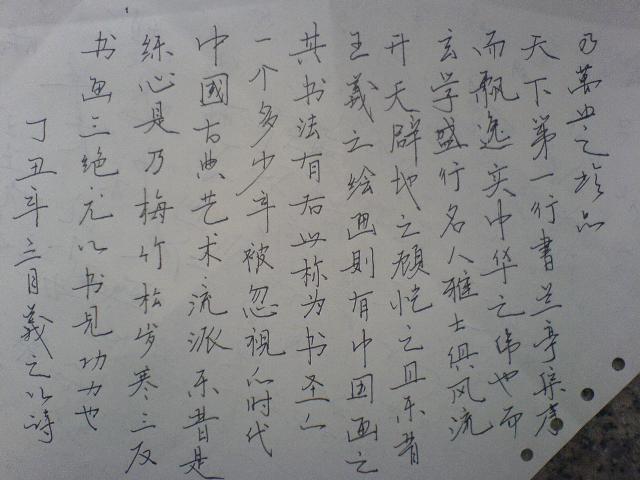 丁丑年三月義之以詩
书画三绝尤以书见功力也
练心是乃梅竹松岁寒三友
中國古典艺术流派东晋是
一个多少年被忽視的时代
其书法有右此称为书圣
王義之绘画则有中国画之
开天辟地之顾恺之且东晋
玄学盛行名人雅士俱风流
而飘逸实中华之伟也而
天下第一行書兰亭集序
乃萬世之珍品